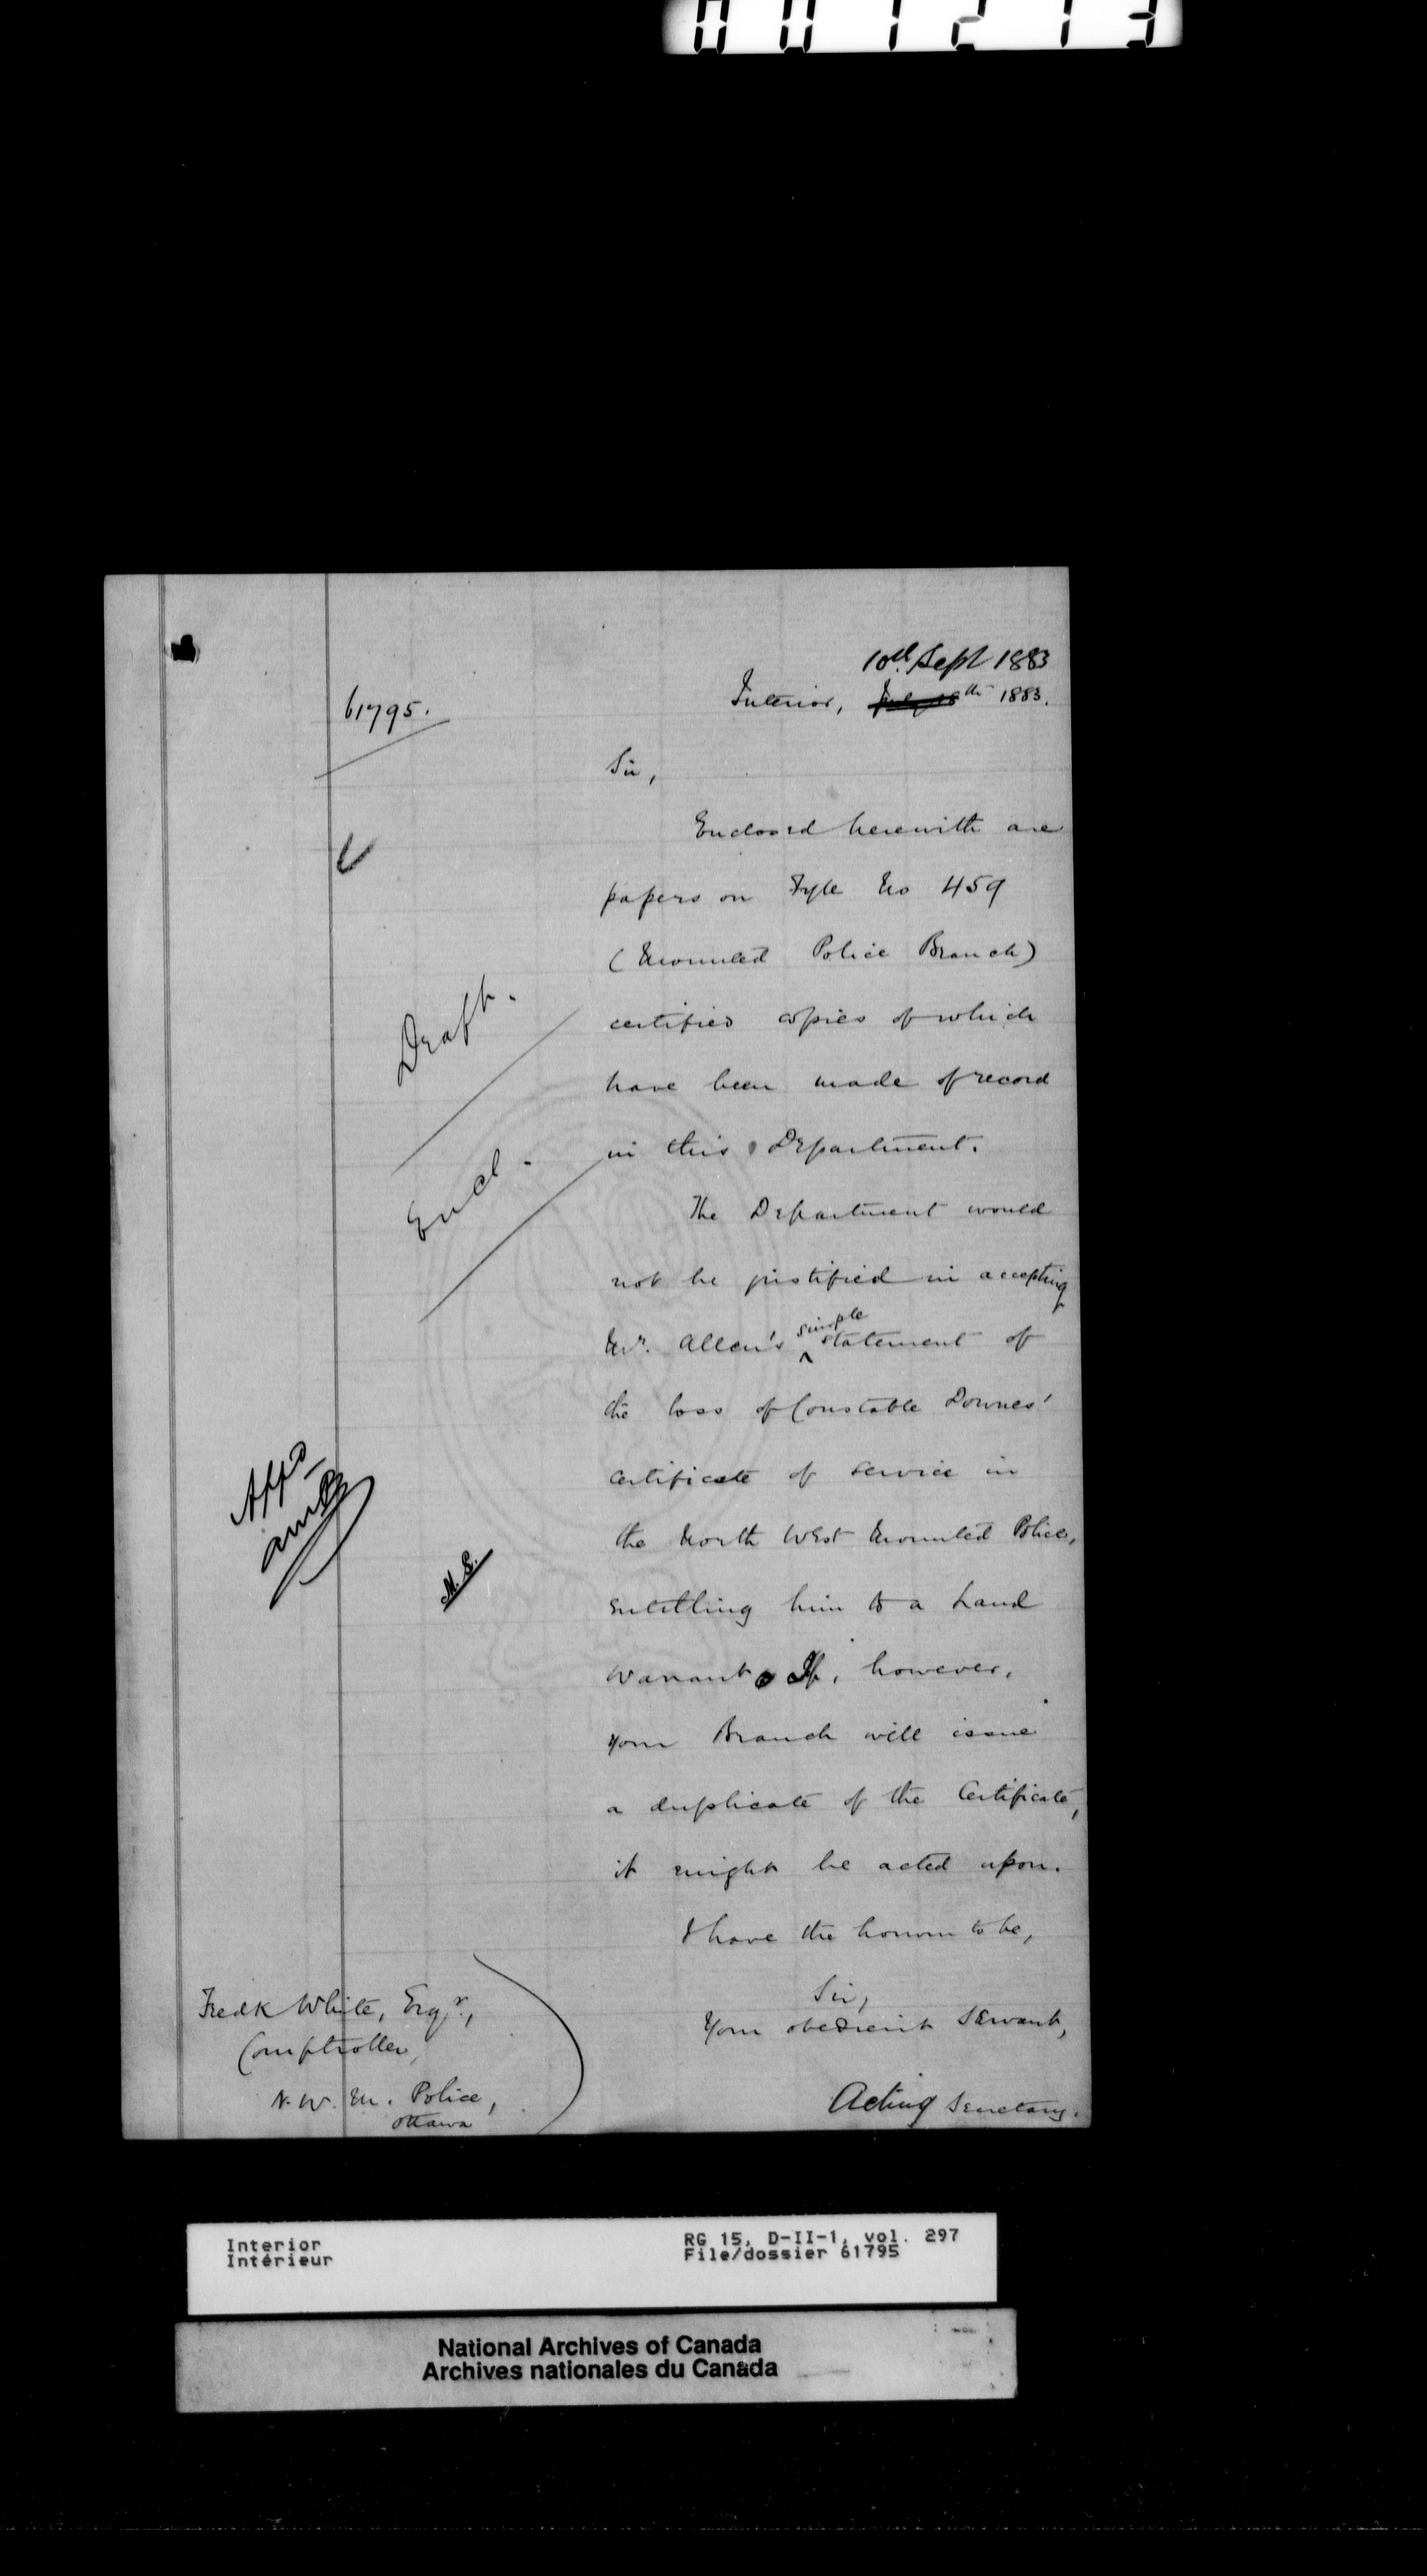 001213
10th Sept 1883
Interior, th 1883.
61795.
Sir,
Enclosed herewith are
papers on Fyle No 459
(Mounted Police Branch)
certified copies of which
have been made of record
in this Department.
Draft.
Encl.
The Department would
not be justified in accepting
Mr. Allen's simple statement of
the loss of Constable Downes'
certificate of service in
the North West Mounted Police,
entitling him to a Land
Warrant. If, however,
your Branch will issue
a duplicate of the Certificate,
it might be acted upon.
I have the honour to be,
Sir,
Your obedient Servant,
Acting Secretary.
Appd
Fredk White, Esqr.,
Comptroller,
N. W. M. Police,
Ottawa
Interior
Intérieur
RG 15, D-II-1, vol. 297
File/dossier 61795
National Archives of Canada
Archives nationales du Canada